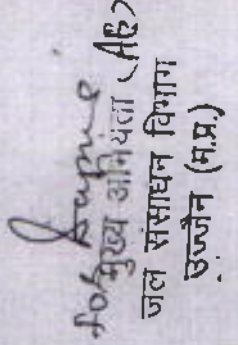 for मुख्य अभियंता (AE)
जल संसाधन विभाग
उज्जैन (म.प्र.)